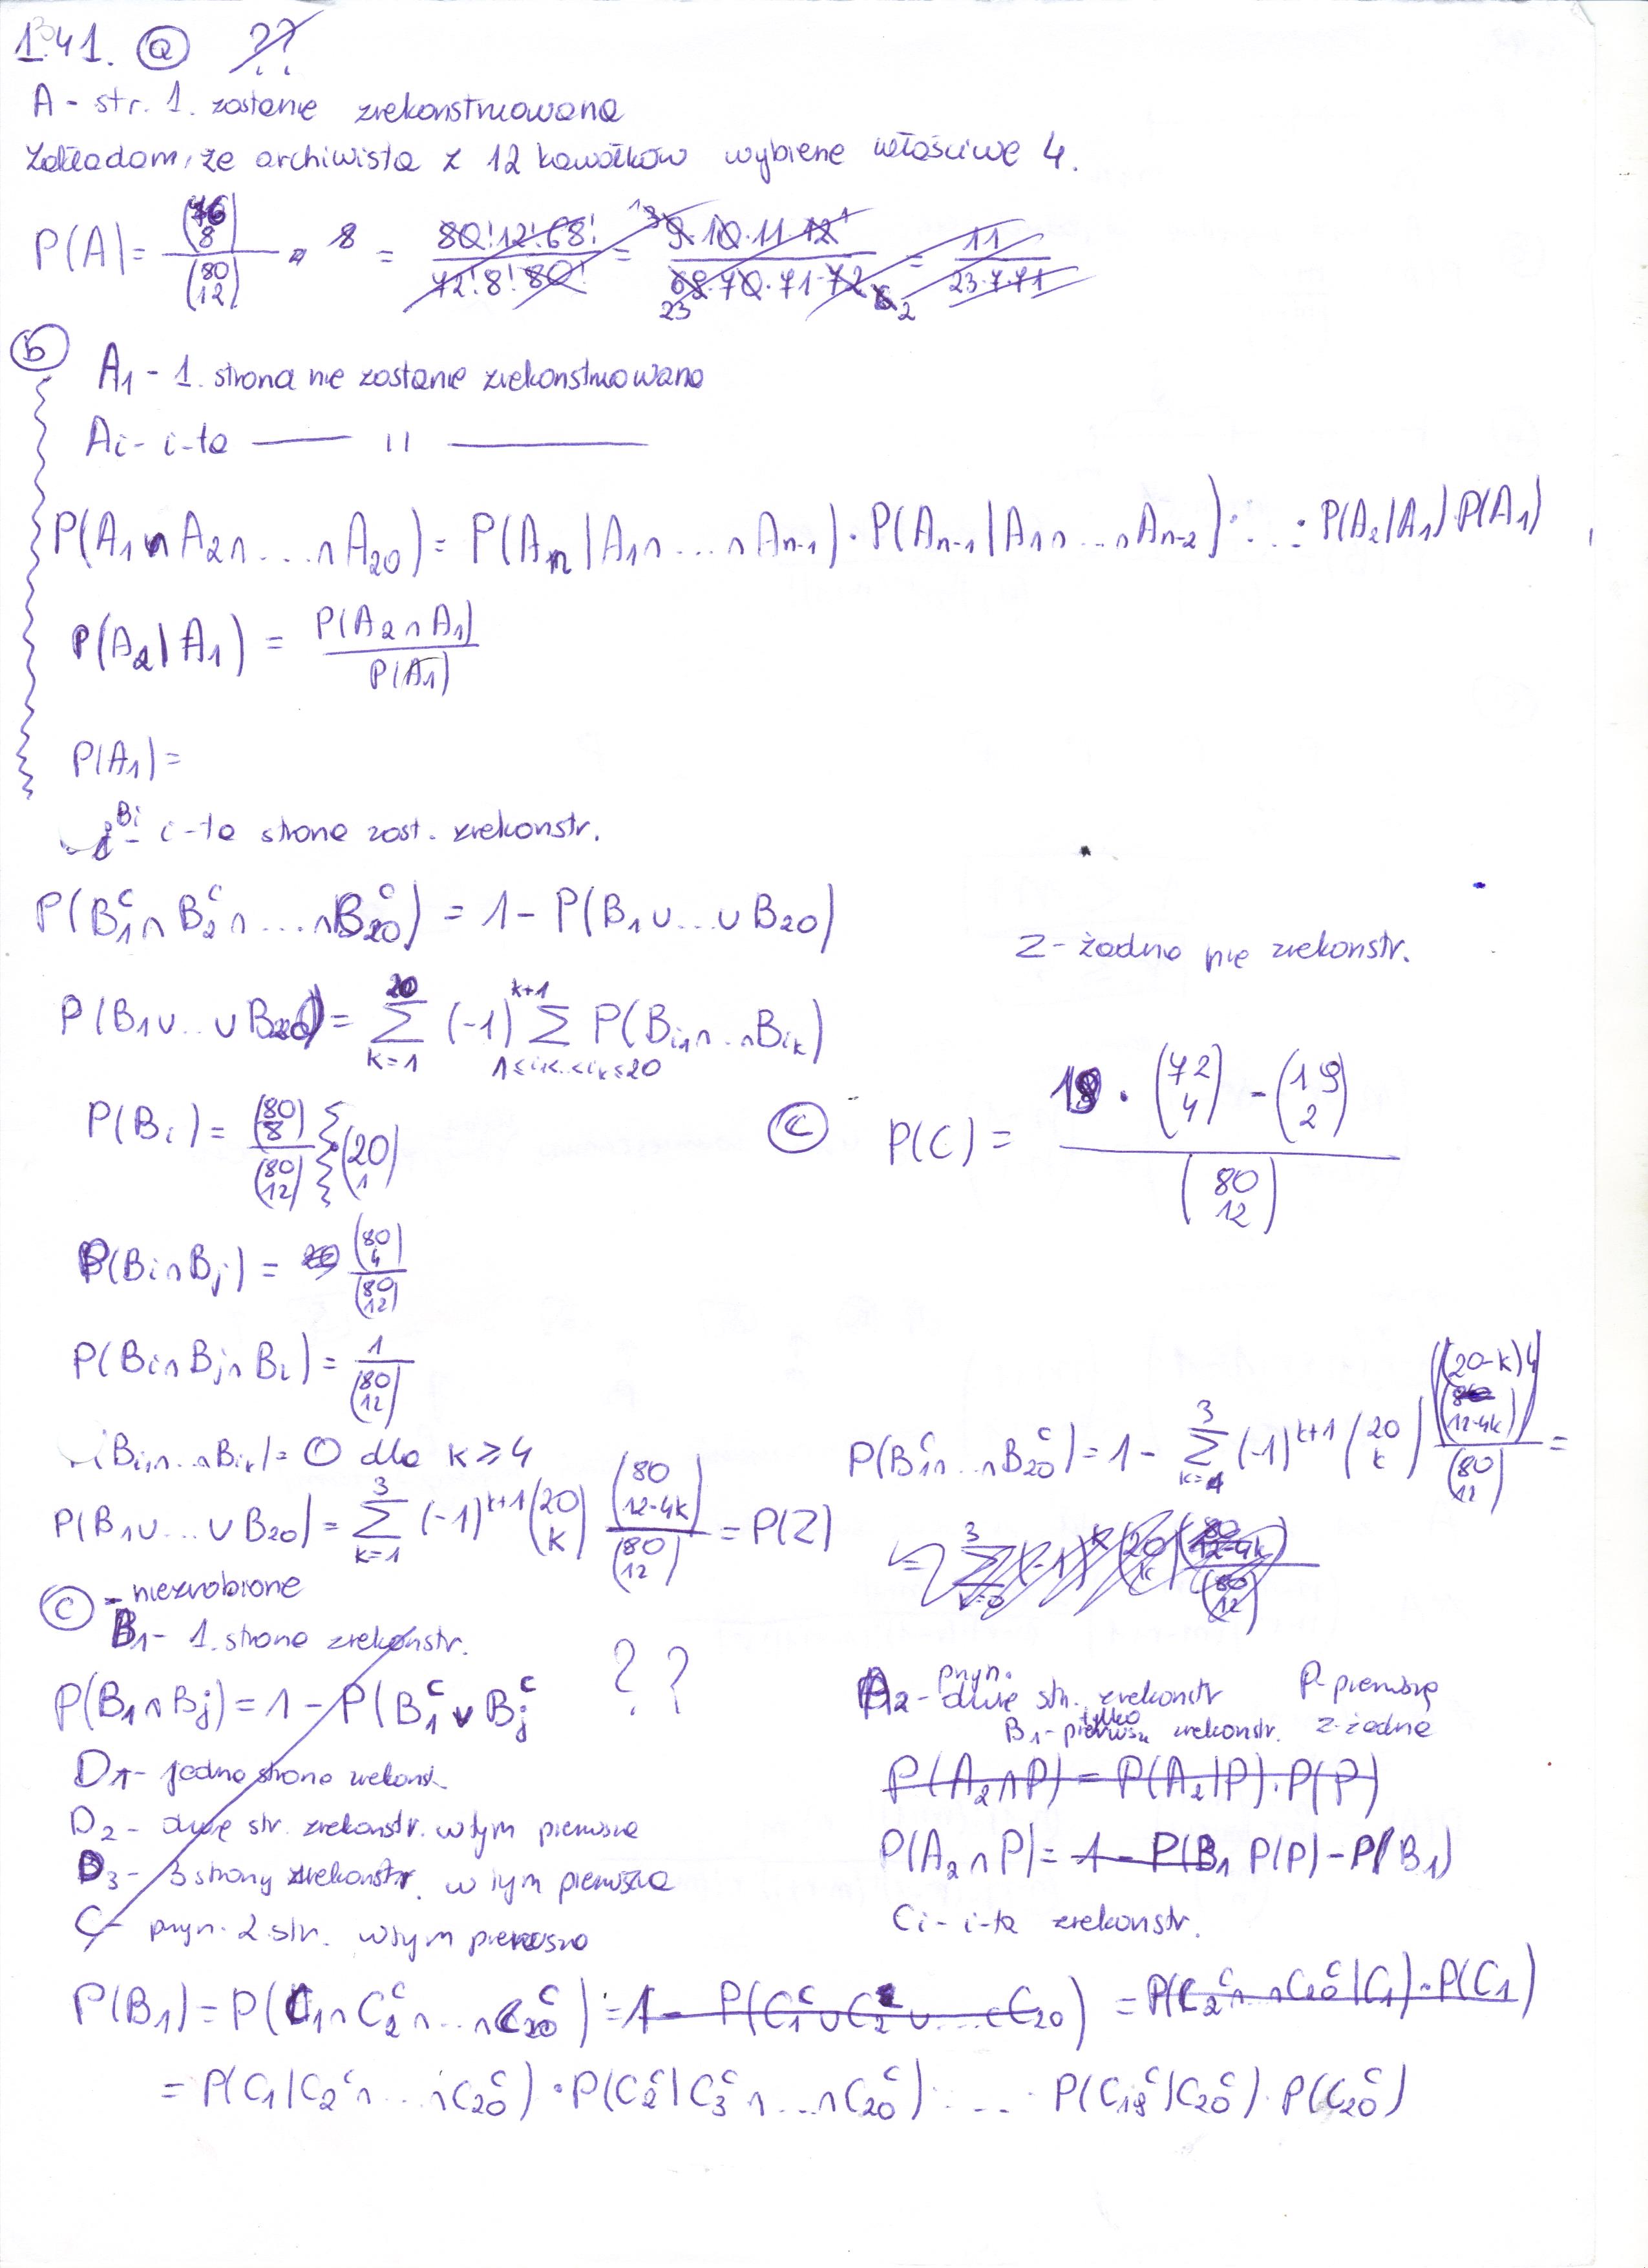 1.41. ⓐ ??
A - str. 1. zostanie zrekonstruowana
Zakładam, że archiwista z 12 kawałków wybierze właściwe 4.
P(A) = \frac{\binom{76}{8}}{\binom{80}{12}} = \frac{80! 12! 68!}{72! 8! 80!} = \frac{9·10·11·12}{69·70·71·72} = \frac{11}{23·7·71}
ⓑ A₁ - 1. strona nie zostanie zrekonstruowana
Ai - i-ta —— 11 ——
P(A₁∩A₂∩...∩A₂₀) = P(Aₙ|A₁∩...∩Aₙ₋₁)·P(Aₙ₋₁|A₁∩...∩Aₙ₋₂)·...·P(A₂|A₁)·P(A₁)
P(A₂|A₁) = \frac{P(A₂∩A₁)}{P(A₁)}
P(A₁) =
Bi - i-ta strona zost. zrekonstr.
P(B₁ᶜ∩B₂ᶜ∩...∩B₂₀ᶜ) = 1 - P(B₁∪...∪B₂₀)
Z - żadna nie zrekonstr.
P(B₁∪..∪B₂₀) = \sum_{k=1}^{20} (-1)^{k+1} \sum_{1≤i₁<..<i_k≤20} P(B_{i₁}∩..∩B_{i_k})
P(Bi) = \frac{\binom{80}{8}}{\binom{80}{12}} } \binom{20}{1}
ⓒ P(C) = \frac{19·\binom{72}{4} - \binom{19}{2}}{\binom{80}{12}}
P(Bi∩Bj) = \frac{\binom{80}{4}}{\binom{80}{12}}
P(Bi∩Bj∩Bi) = \frac{1}{\binom{80}{12}}
(B_{i₁}∩...∩B_{i_k}) = 0 dla k ≥ 4
P(B₁ᶜ∩...∩B₂₀ᶜ) = 1 - \sum_{k=1}^{3} (-1)^{k+1} \binom{20}{k} \frac{\binom{(20-k)4}{12-4k}}{\binom{80}{12}} =
P(B₁∪...∪B₂₀) = \sum_{k=1}^{3} (-1)^{k+1} \binom{20}{k} \frac{\binom{80}{12-4k}}{\binom{80}{12}} = P(Z)
= \sum_{k=0}^{3} (-1)^k \binom{20}{k} \frac{\binom{80}{12-4k}}{\binom{80}{12}}
ⓒ - niezrobione
B₁ - 1. strona zrekonstr.
P(B₁∩Bj) = 1 - P(B₁ᶜ∪Bjᶜ ??
D₁ - jedna strona zrekonst.
D₂ - dwie str. zrekonstr. w tym pierwsza
D₃ - 3 strony zrekonstr. w tym pierwsza
C - przyn. 2 str. w tym pierwsza
A₂ - przyn. dwie str. zrekonstr P - pierwszą
B₁ - tylko pierwsza zrekonstr. Z - żadna
P(A₂∩P) = P(A₂|P)·P(P)
P(A₂∩P) = 1 - P(B₁ P(P) - P(B₁)
Ci - i-ta zrekonstr.
P(B₁) = P(C₁∩C₂ᶜ∩...∩C₂₀ᶜ) = 1 - P(C₁ᶜ∪C₂∪...C₂₀) = P(C₂ᶜ∩..∩C₂₀ᶜ|C₁)·P(C₁)
= P(C₁|C₂ᶜ∩...∩C₂₀ᶜ)·P(C₂ᶜ|C₃ᶜ∩...∩C₂₀ᶜ)·...·P(C₁₉ᶜ|C₂₀ᶜ)·P(C₂₀ᶜ)